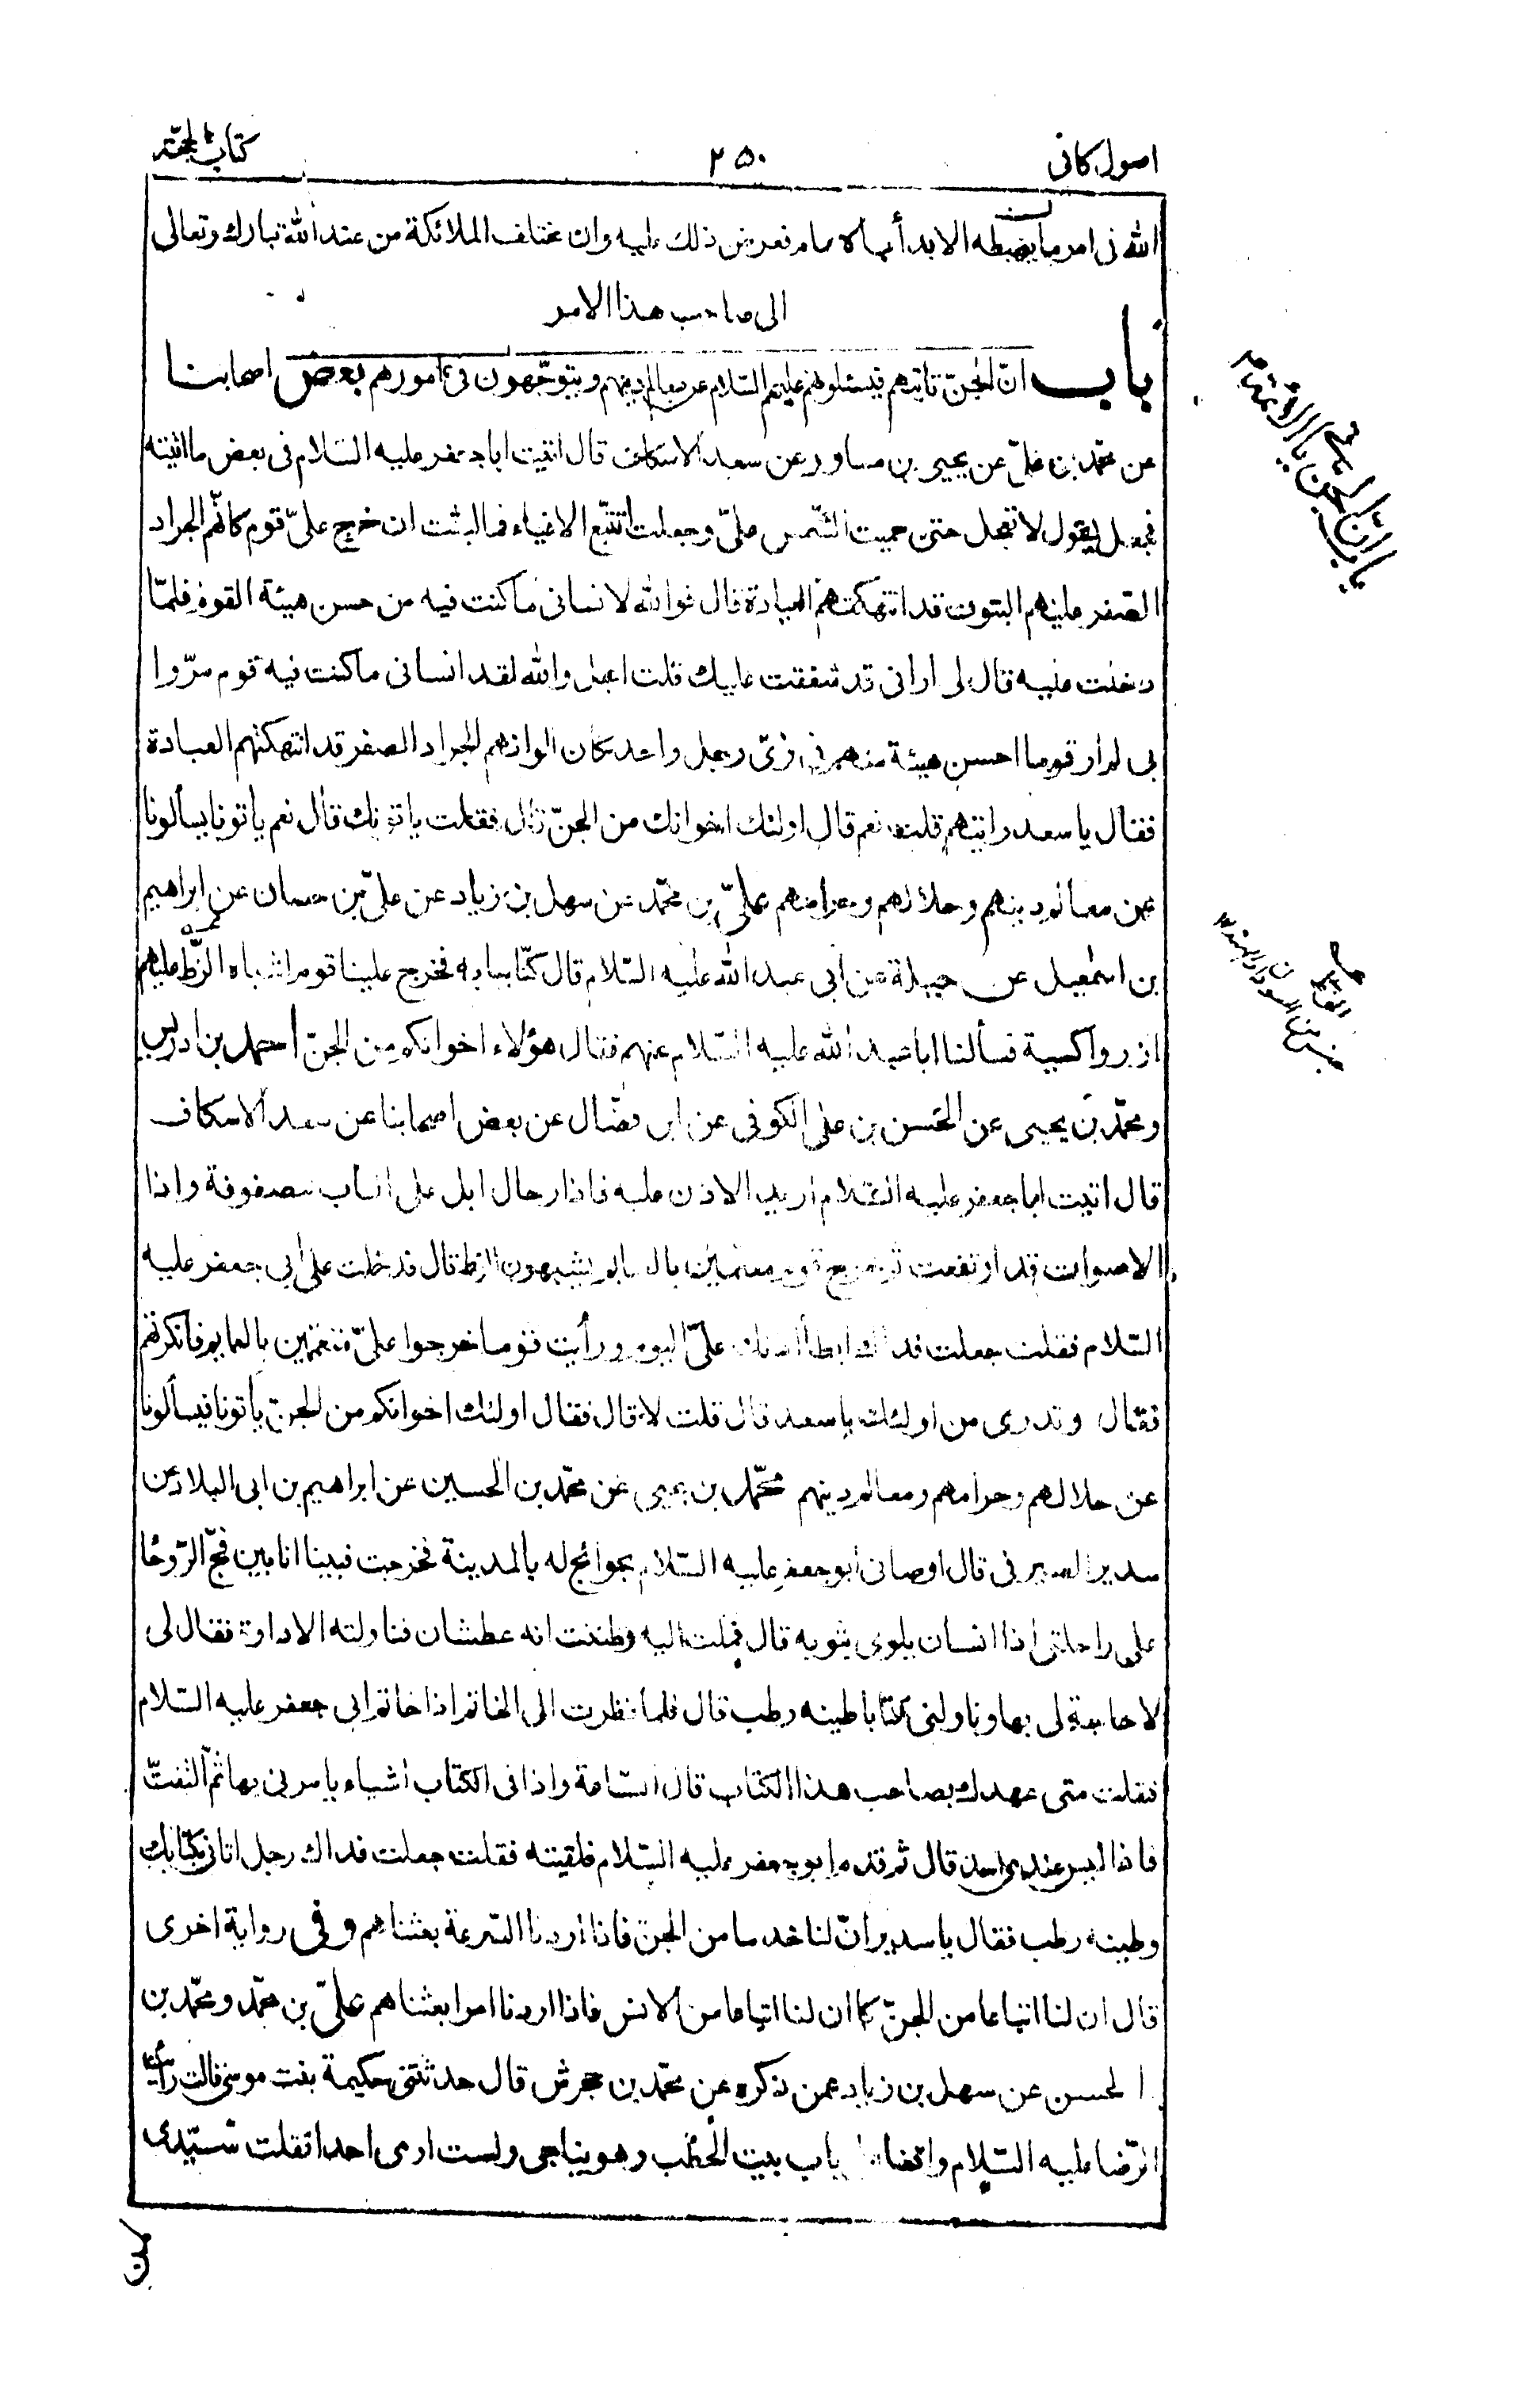 اصول كافى
٢٥٠
كتاب الحجّة
الله فى امر ما يهبطه الا بدأ بالامام فعرض ذلك عليه وان مختلف الملائكة من عند الله تبارك وتعالى
الى صاحب هذا الامر
باب انّ الجنّ تاتيهم فيسئلونهم عليهم السّلام عن معالم دينهم ويتوجّهون فى امورهم بعض اصحابنا
عن محمّد بن علىّ عن يحيى بن مساور عن سعد الاسكاف قال اتيت ابا جعفر عليه السّلام فى بعض ما اتيته
فجعل يقول لا تعجل حتى حميت الشّمس علىّ وجعلت اتتبّع الافياء فما لبثت ان خرج علىّ قوم كانّهم الجراد
الصّفر عليهم البتوت قد انتهكتهم العبادة قال فوالله لانسانى ما كنت فيه من حسن هيئة القوم فلمّا
دخلت عليه قال لى ارانى قد شققت عليك قلت اجل والله لقد انسانى ما كنت فيه قوم مرّوا
بى لم ار قوما احسن هيئة منهم فى زىّ رجل واحد كان الوانهم الجراد الصفر قد انتهكتهم العبادة
فقال يا سعد رايتهم قلت نعم قال اولئك اخوانك من الجنّ قال فقلت ياتونك قال نعم يأتونا يسألونا
عن معالم دينهم وحلالهم وحرامهم علىّ بن محمّد عن سهل بن زياد عن علىّ بن حسان عن ابراهيم
بن اسمعيل عن جبلة عن ابى عبد الله عليه السّلام قال كنّا ببابه فخرج علينا قوم اشباه الزّط عليهم
ازر واكسية فسألنا ابا عبد الله عليه السّلام عنهم فقال هؤلاء اخوانكم من الجنّ احمد بن ادريس
ومحمّد بن يحيى عن الحسن بن على الكوفى عن ابن فضّال عن بعض اصحابنا عن سعد الاسكاف
قال اتيت ابا جعفر عليه السّلام اريد الاذن عليه فاذا رحال ابل على الباب مصفوفة واذا
الاصوات قد ارتفعت ثم خرج قوم معتمين بالعمايم يشبهون الزط قال فدخلت على ابى جعفر عليه
السّلام فقلت جعلت فداك ابطأ اذنك علىّ اليوم ورأيت قوما خرجوا علىّ معتمين بالعمايم فانكرتهم
فقال وتدرى من اولئك يا سعد قال قلت لا قال فقال اولئك اخوانكم من الجن يأتونا فيسألونا
عن حلالهم وحرامهم ومعالم دينهم محمّد بن يحيى عن محمّد بن الحسين عن ابراهيم بن ابى البلاد عن
سدير الصيرفى قال اوصانى ابو جعفر عليه السّلام بحوائج له بالمدينة فخرجت فبينا انا بين فجّ الرّوحا
على راحلتى اذا انسان يلوى بثوبه قال فملت اليه وظننت انه عطشان فناولته الاداوة فقال لى
لا حاجة لى بها وناولنى كتابا طينه رطب قال فلما نظرت الى الخاتم اذا خاتم ابى جعفر عليه السّلام
فقلت متى عهدك بصاحب هذا الكتاب قال السّاعة واذا فى الكتاب اشياء يامرنى بها ثمّ التفتّ
فاذا ليس عندى احد قال ثم قدم ابو جعفر عليه السّلام فلقيته فقلت جعلت فداك رجل اتانى بكتابك
وطينه رطب فقال يا سدير انّ لنا خدما من الجنّ فاذا اردنا السّرعة بعثناهم وفى رواية اخرى
قال ان لنا اتباعا من الجنّ كما ان لنا اتباعا من الانس فاذا اردنا امرا بعثناهم علىّ بن محمّد ومحمّد بن
الحسن عن سهل بن زياد عمن ذكره عن محمّد بن جحرش قال حدثتنى حكيمة بنت موسى قالت رأيت
الرّضا عليه السّلام واقفا باب بيت الحطب وهو يناجى ولست ارى احدا فقلت سيّدى